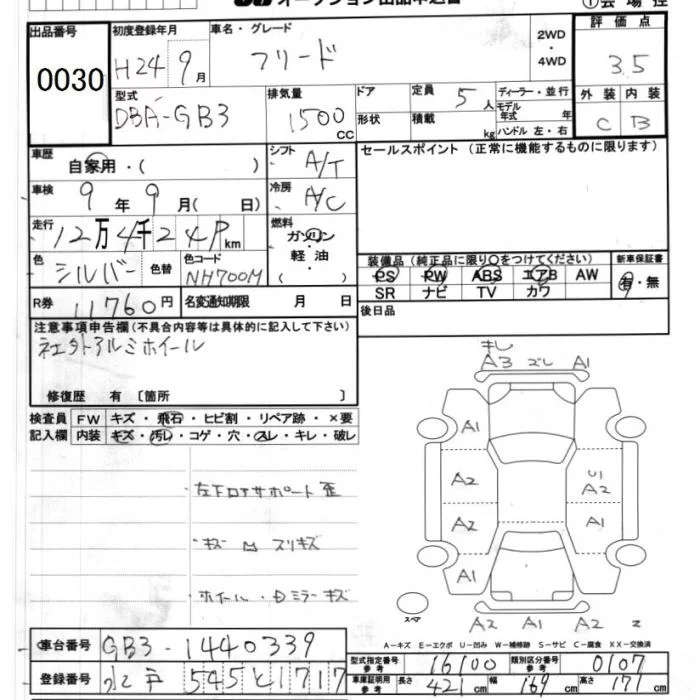 出品番号 初度登録年月 車名・グレード 2WD ・ 4WD 評価点
0030 H24 9月 フリード 3.5
型式 排気量 ドア 定員 5人 ディーラー・並行 外装 内装
DBA-GB3 1500CC 形状 積載 kg モデル年式 年 ハンドル 左・右 C B
車歴 自家用・( ) シフト A/T セールスポイント(正常に機能するものに限ります)
車検 9年 9月( 日) 冷房 A/C
走行 12万4千24 km 燃料 ガソリン・軽油・( )
色 シルバー 色替 色コード NH700M 装備品(純正品に限り○をつけてください) 新車保証書
PS PW ABS エアB AW 有・無
SR ナビ TV カワ
R券 11760円 名変通知期限 月 日 後日品
注意事項申告欄(不具合内容等は具体的に記入して下さい)
社外アルミホイール
修復歴 有 [箇所 ]
検査員 FW キズ・飛石・ヒビ割・リペア跡・×要
記入欄 内装 キズ・汚レ・コゲ・穴・スレ・キレ・破レ
A3 A1
A1
A2 U1 A2
A2 A1
A1
スペア A2 A1 A2
左下ロアサポート歪
・キズ スリキズ
ホイール・ミラーキズ
A-キズ E-エクボ U-凹み W-補修跡 S-サビ C-腐食 XX-交換済
車台番号 GB3-1440339 型式指定番号 参考 16100 類別区分番号 参考 0107
登録番号 水戸 545 1717 車庫証明用 参考 長さ 421cm 幅 169cm 高さ 171cm